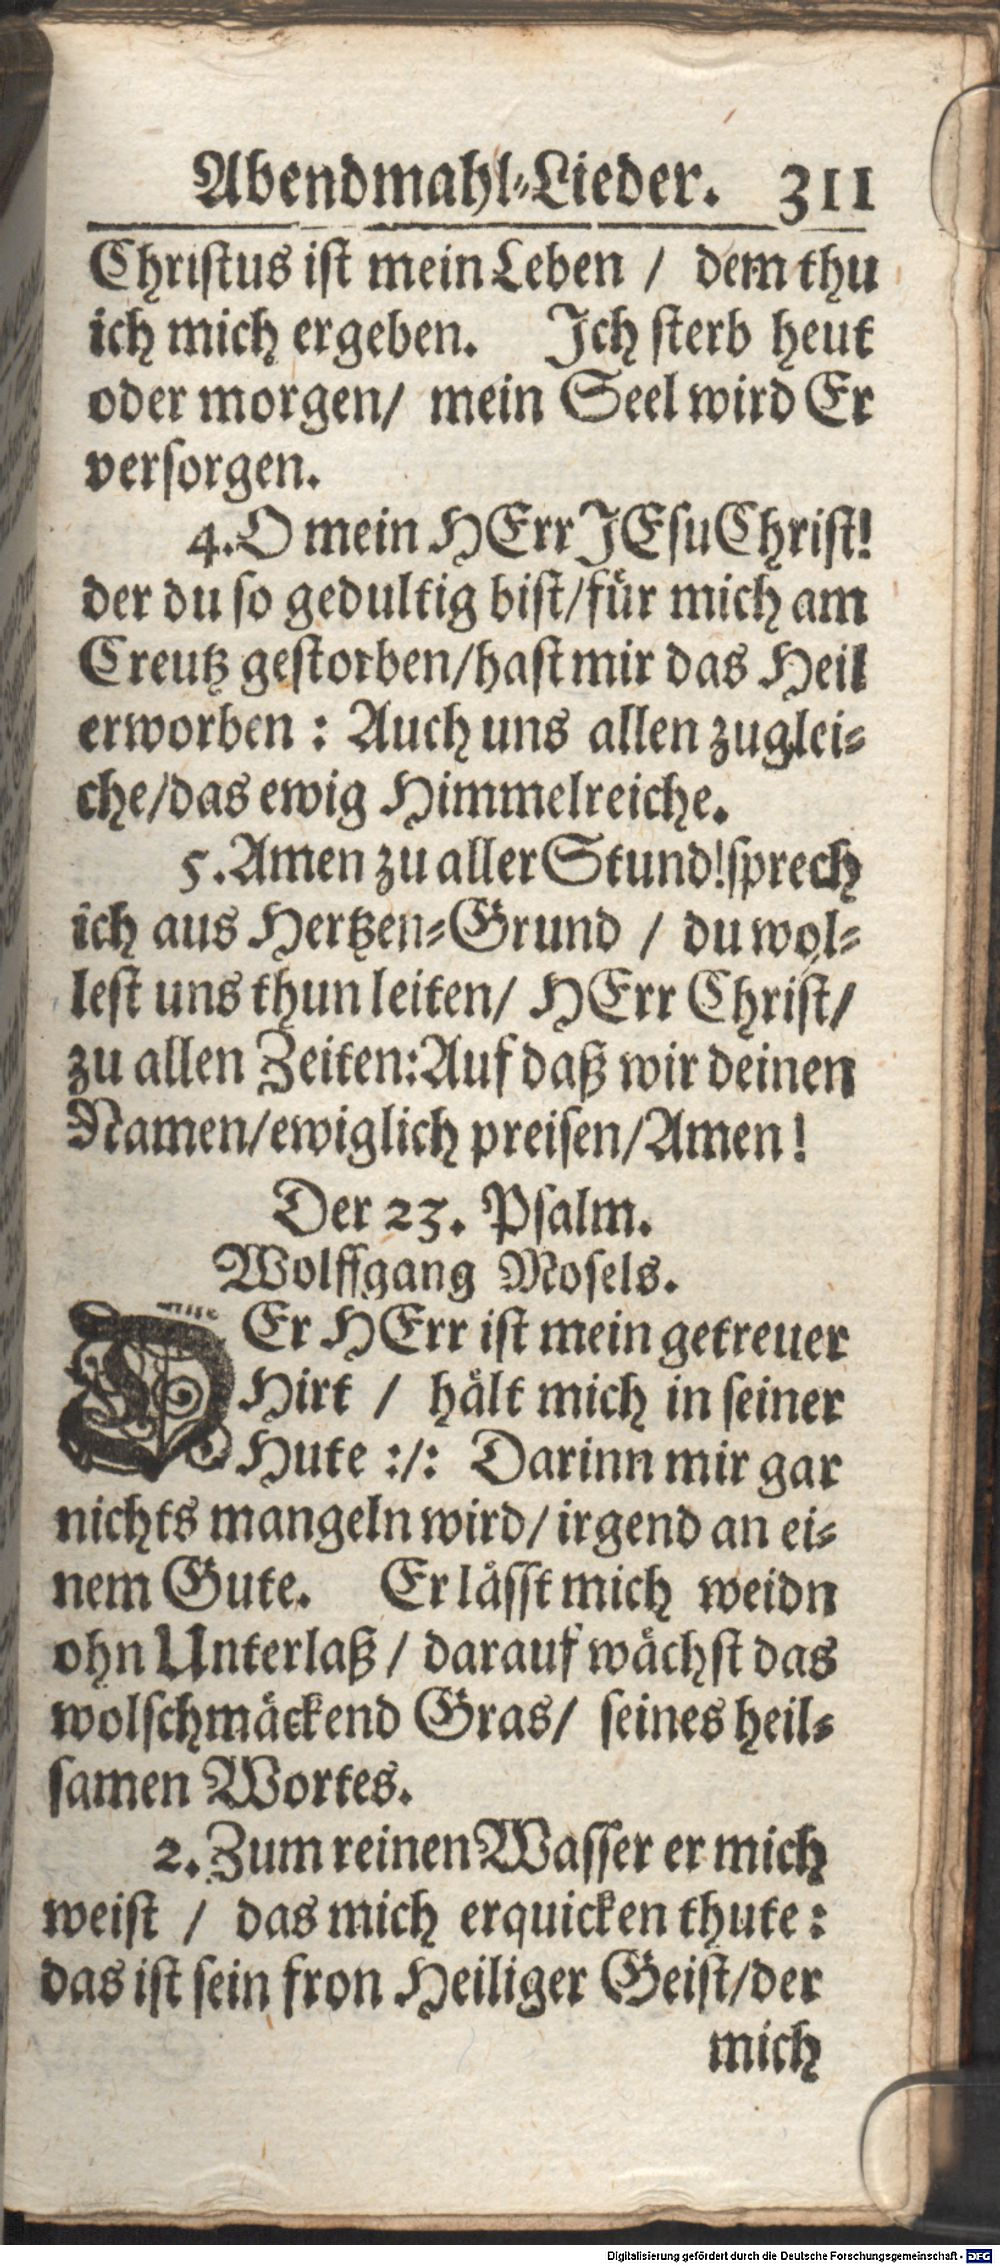 Abendmahl-Lieder. 311
Christus ist mein Leben / dem thu
ich mich ergeben. Ich sterb heut
oder morgen/ mein Seel wird Er
versorgen.
4. O mein HErr JEsu Christ!
der du so gedultig bist/für mich am
Creutz gestorben/hast mir das Heil
erworben : Auch uns allen zuglei-
che/das ewig Himmelreiche.
5. Amen zu aller Stund!sprech
ich aus Hertzen-Grund / du wol-
lest uns thun leiten/ HErr Christ/
zu allen Zeiten:Auf daß wir deinen
Namen/ewiglich preisen/Amen!
Der 23. Psalm.
Wolffgang Mosels.
DEr HErr ist mein getreuer
Hirt / hält mich in seiner
Hute :/: Darinn mir gar
nichts mangeln wird/irgend an ei-
nem Gute. Er lässt mich weidn
ohn Unterlaß / darauf wächst das
wolschmäckend Gras/ seines heil-
samen Wortes.
2. Zum reinen Wasser er mich
weist / das mich erquicken thute:
das ist sein fron Heiliger Geist/der
mich
Digitalisierung gefördert durch die Deutsche Forschungsgemeinschaft - DFG